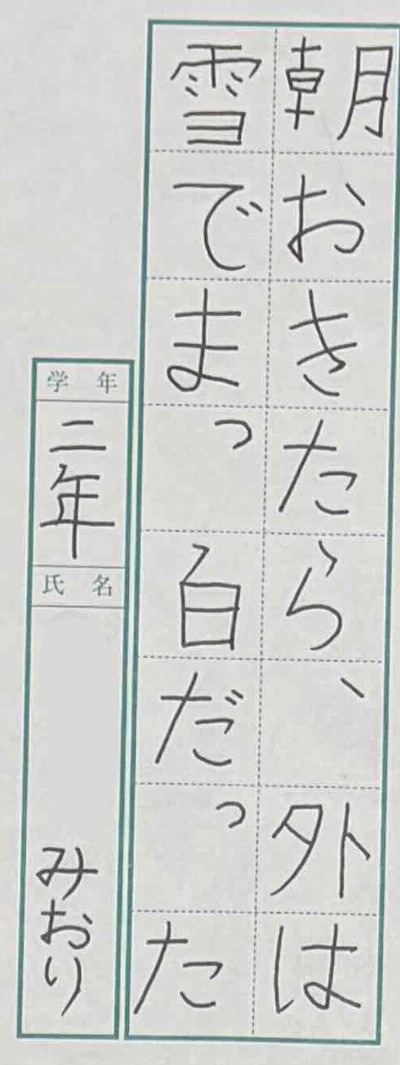 朝おきたら、外は
雪でまっ白だった
学年
二年
氏名
みおり